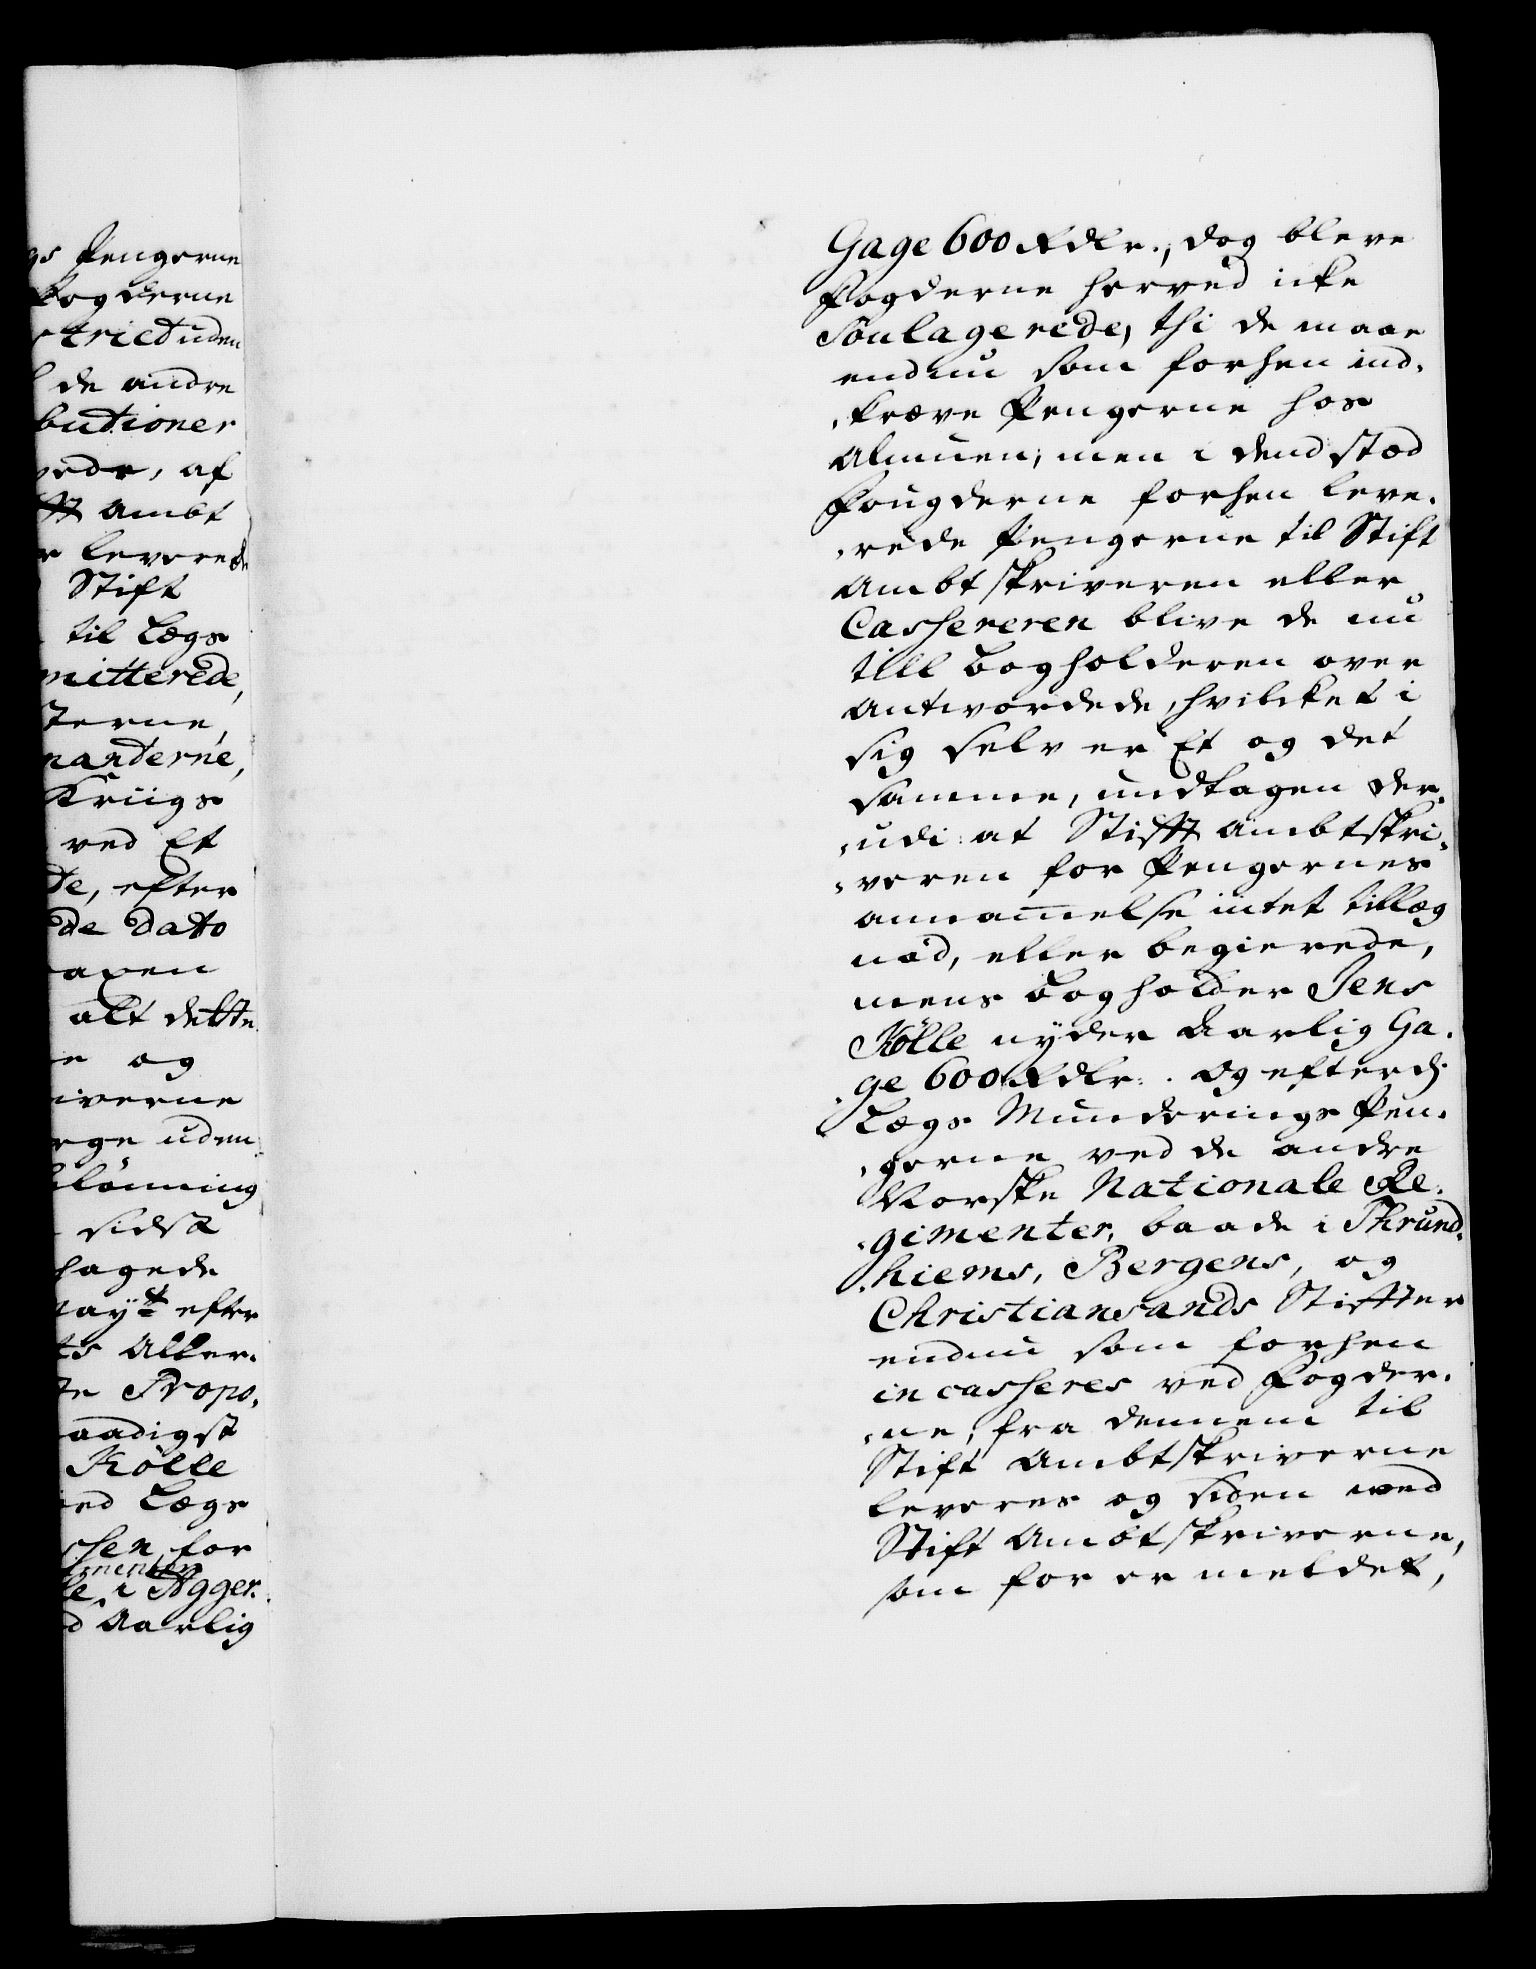 gs Pengerne
Fogderne
trict uden
de andre
butioner
rede, af
fft Ambt
r leverede
Stift
til Lægs
mitterede,
terne,
narterne,
Kriigs
ved Et
te, efter
de dato
alt dette
e og
iverne
rge uden
lönning
sidst
hagede
May:tt efter
ts Aller-
te Propo-
aadigst
Kölle
ed Lægs
for
imenter
le, i Agger-
d Aarlig
Gage 600 Rdlr., dog bleve
Fogderne herved icke
Soulagerede, thi de maae
endnu som forhen ind-
-kræve Pengerne hos
Almuen; men i dend stæd
Fougderne forhen leve-
-rede Pengerne til Stift
Ambtskriveren eller
Cassereren blive de nu
till Bogholderen over
Antvordede, hvilcket i
sig selv er Et og det
samme, undtagen der-
-udi: at Stifft Ambtskri-
-veren for Pengernes
annamelse intet tillæg
nöd, eller begierede,
mens Bogholder Jens
Kölle nyder Aarlig Ga-
-ge 600 Rdlr: . Og efterdj
Lægs Munderings Pen-
-gerne ved de andre
Norske Nationale Re-
-gimenter, baade i Thrund-
-hiems, Bergens, og
Christiansands Stiffter
endnu som forhen
incasseres ved Fogder-
-ne, fra dennem til
Stift Ambtskriverne
leveres og siden med
Stift Ambtskriverne,
som for er meldet,